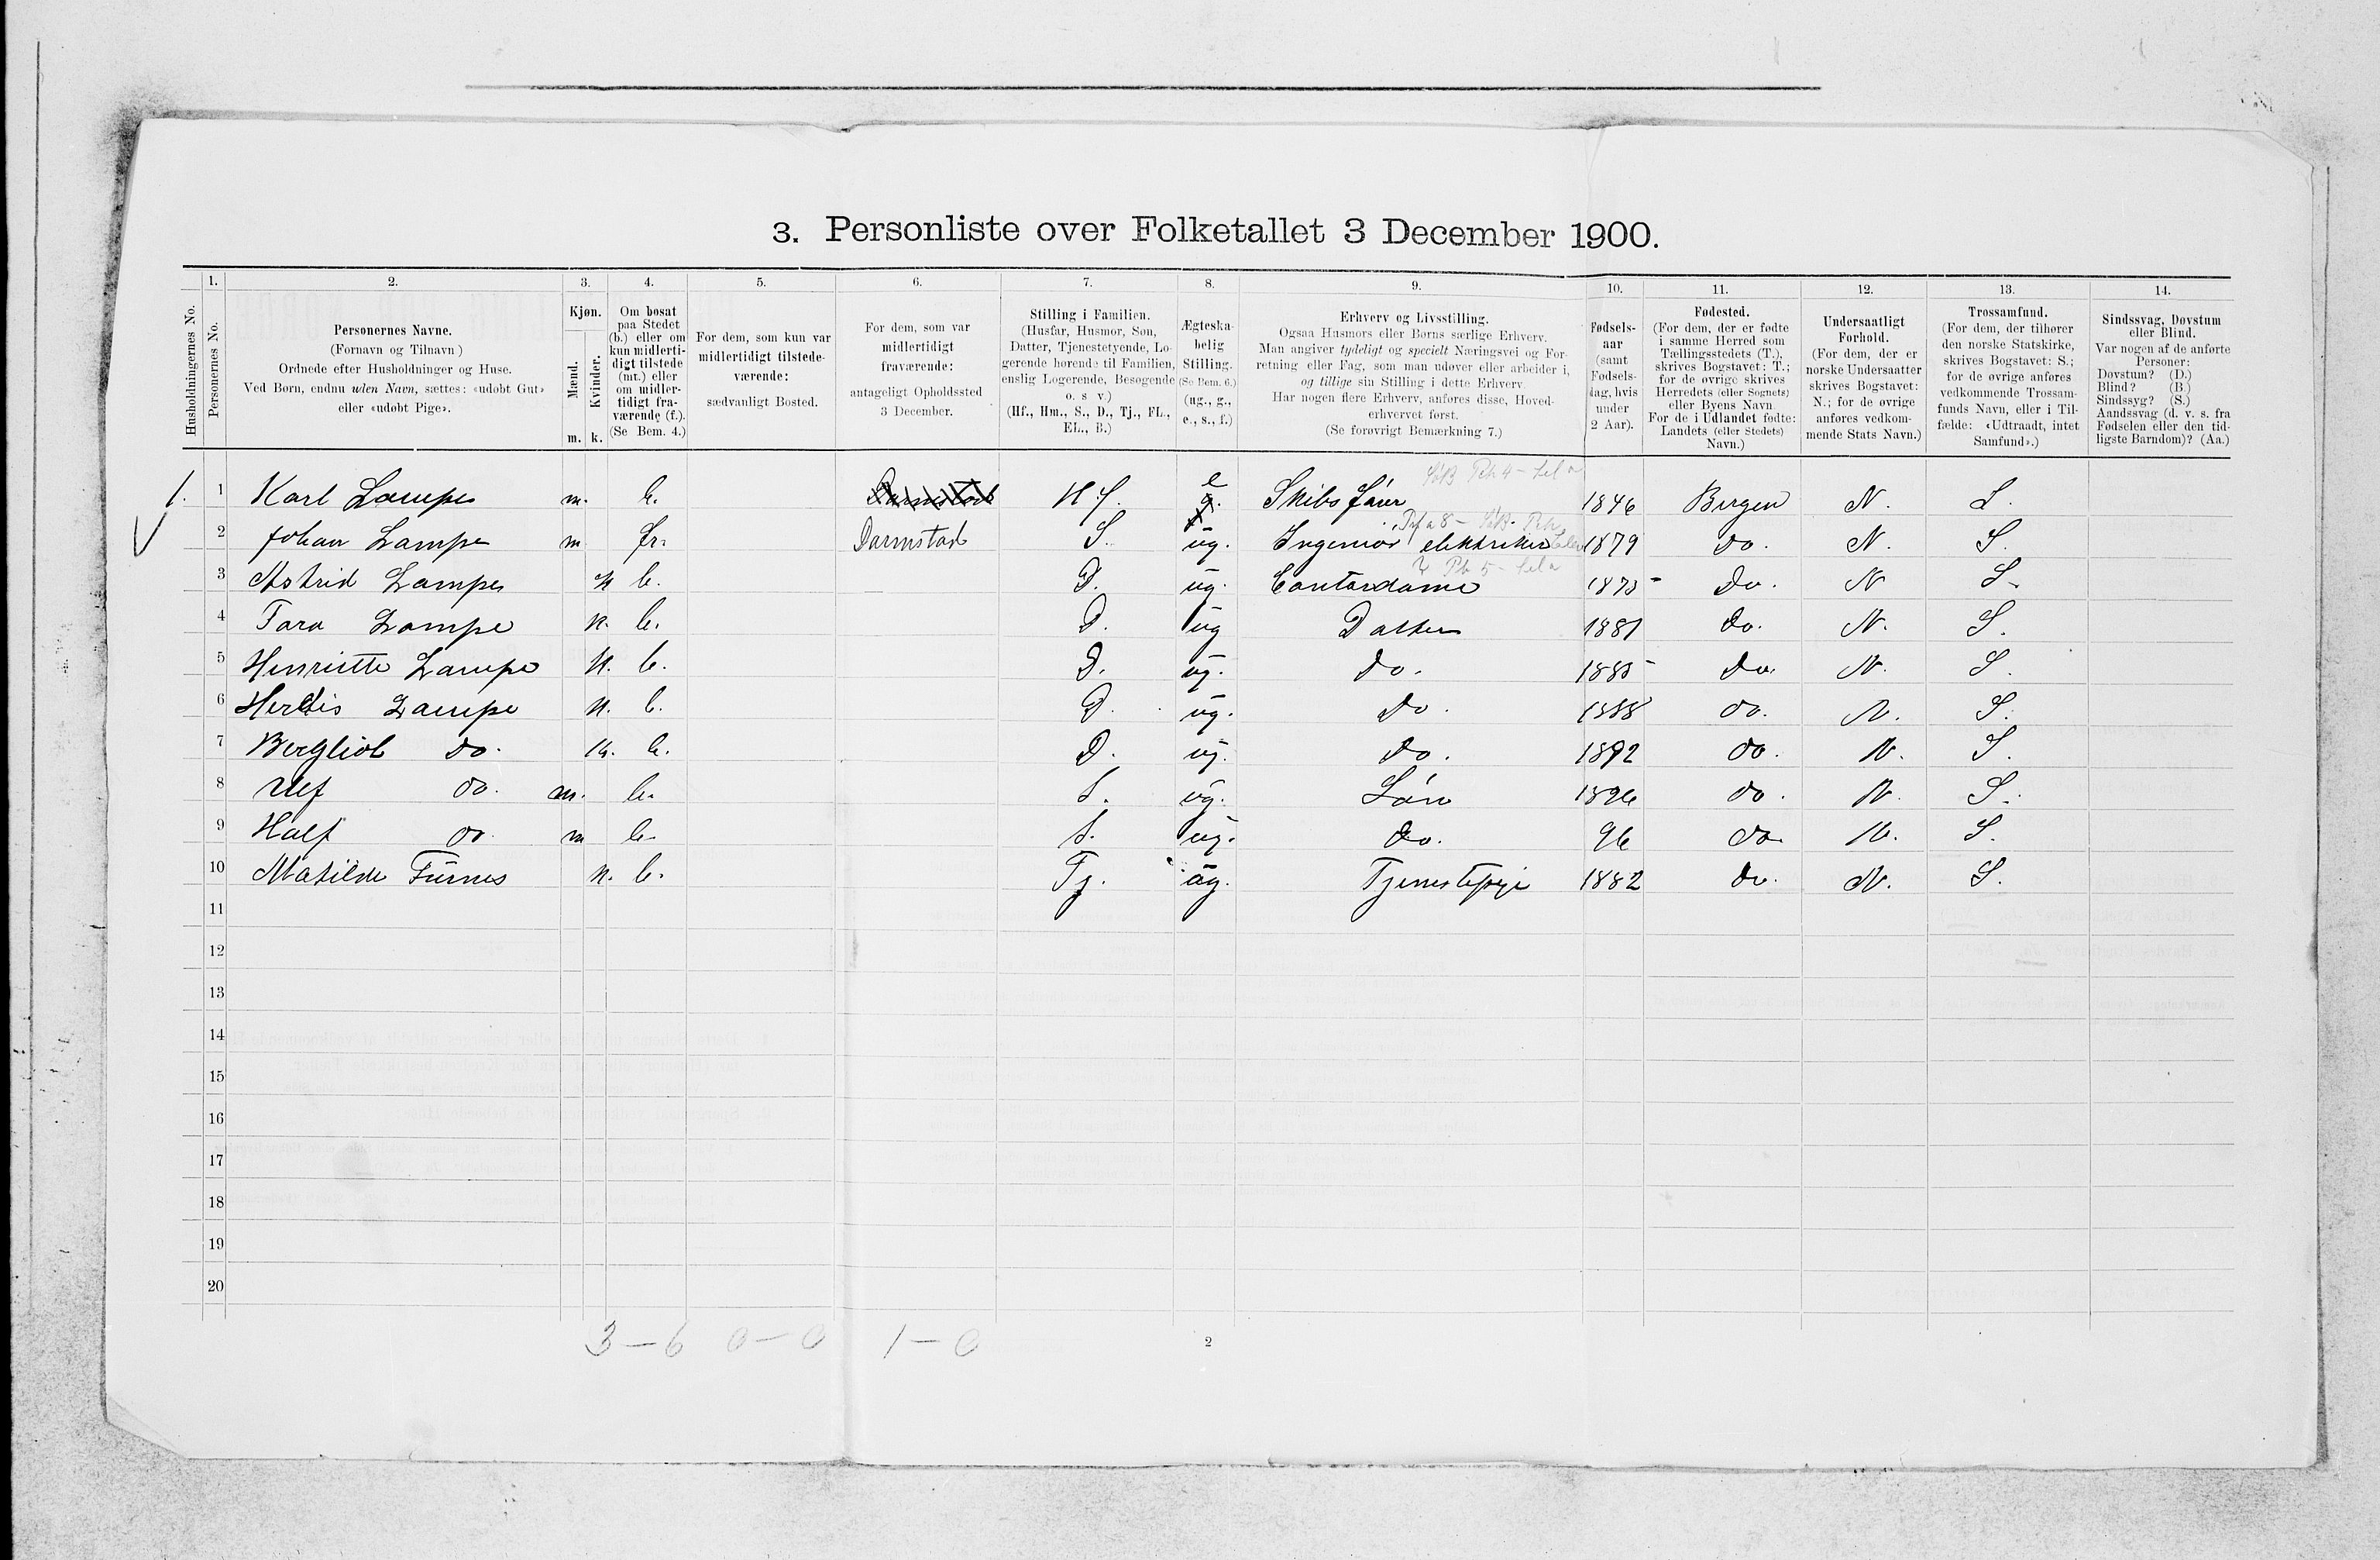 3. Personliste over Folketallet 3 December 1900.
Husholdningernes No.
1. Personernes No.
2. Personernes Navne.
(Fornavn og Tilnavn)
Ordnede efter Husholdninger og Huse.
Ved Børn, endnu uden Navn, sættes: «udøbt Gut»
eller «udøbt Pige».
3. Kjøn.
Mænd. m.
Kvinder. k.
4. Om bosat
paa Stedet
(b.) eller om
kun midlerti-
digt tilstede
(mt.) eller
om midler-
tidigt fra-
værende (f.).
(Se Bem. 4.)
5. For dem, som kun var
midlertidigt tilstede-
værende:
sædvanligt Bosted.
6. For dem, som var
midlertidigt
fraværende:
antageligt Opholdssted
3 December.
7. Stilling i Familien.
(Husfar, Husmor, Søn,
Datter, Tjenestetyende, Lo-
gerende hørende til Familien,
enslig Logerende, Besøgende
o. s. v.)
(Hf., Hm., S., D., Tj., FL.,
EL., B.)
8. Ægteska-
belig
Stilling.
(Se Bem. 6.)
(ug., g.,
e., s., f.)
9. Erhverv og Livsstilling.
Ogsaa Husmors eller Børns særlige Erhverv.
Man angiver tydeligt og specielt Næringsvei og For-
retning eller Fag, som man udøver eller arbeider i,
og tillige sin Stilling i dette Erhverv.
Har nogen flere Erhverv, anføres disse, Hoved-
erhvervet først.
(Se forøvrigt Bemærkning 7.)
10. Fødsels-
aar
(samt
Fødsels-
dag, hvis
under
2 Aar).
11. Fødested.
(For dem, der er fødte
i samme Herred som
Tællingsstedets (T.),
skrives Bogstavet: T.;
for de øvrige skrives
Herredets (eller Sognets)
eller Byens Navn.
For de i Udlandet fødte:
Landets (eller Stedets)
Navn.)
12. Undersaatligt
Forhold.
(For dem, der er
norske Undersaatter
skrives Bogstavet:
N.; for de øvrige
anføres vedkom-
mende Stats Navn.)
13. Trossamfund.
(For dem, der tilhører
den norske Statskirke,
skrives Bogstavet: S.;
for de øvrige anføres
vedkommende Trossam-
funds Navn, eller i Til-
fælde: «Udtraadt, intet
Samfund».)
14. Sindssvag, Døvstum
eller Blind.
Var nogen af de anførte
Personer:
Døvstum? (D.)
Blind? (B.)
Sindssyg? (S.)
Aandssvag (d. v. s. fra
Fødselen eller den tid-
ligste Barndom)? (Aa.)
1. 1 Karl Lampe m. b. Darmstad Hf. e g. Skibsfører 1846 Bergen N. S.
2 Johan Lampe m fr. Darmstad S. ug. Ingeniør elektriker 1879 do. N. S.
3 Astrid Lampe k b. D. ug. Contordame 1875 do. N S.
4 Tora Lampe k. b. D. ug Datter 1881 do. N. S.
5 Henriette Lampe k. b. D. ug. do. 1885 do. N. S.
6 Herdis Lampe k. b. D. ug. do. 1888 do. N. S.
7 Bergliot do. k. b. D. ug. do. 1892 do. N. S.
8 Ulf do. m. b. S. ug. Søn 1896 do. N. S.
9 Half do. m b. S. ug. do. 96 do. N. S.
10 Matilde Furnes k. b. Tj. ug. Tjenestepige 1882 do. N. S.
11
12
13
14
15
16
17
18
19
20
3 — 6 0 — 0 1 — 0
2